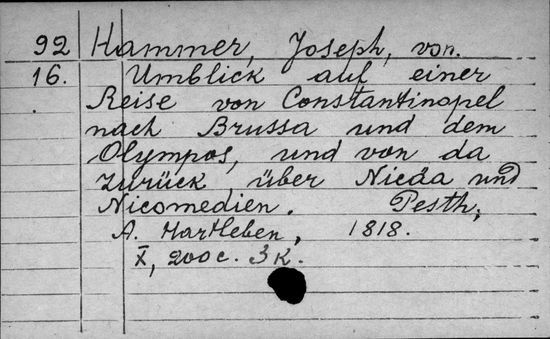 92 Hammer, Joseph, von.
16. Umblick auf einer
Reise von Constantinopel
nach Brussa und dem
Olympos, und von da
zurück über Nicäa und
Nicomedien. Pesth,
A. Hartleben, 1818.
X, 200 c. 3 K.